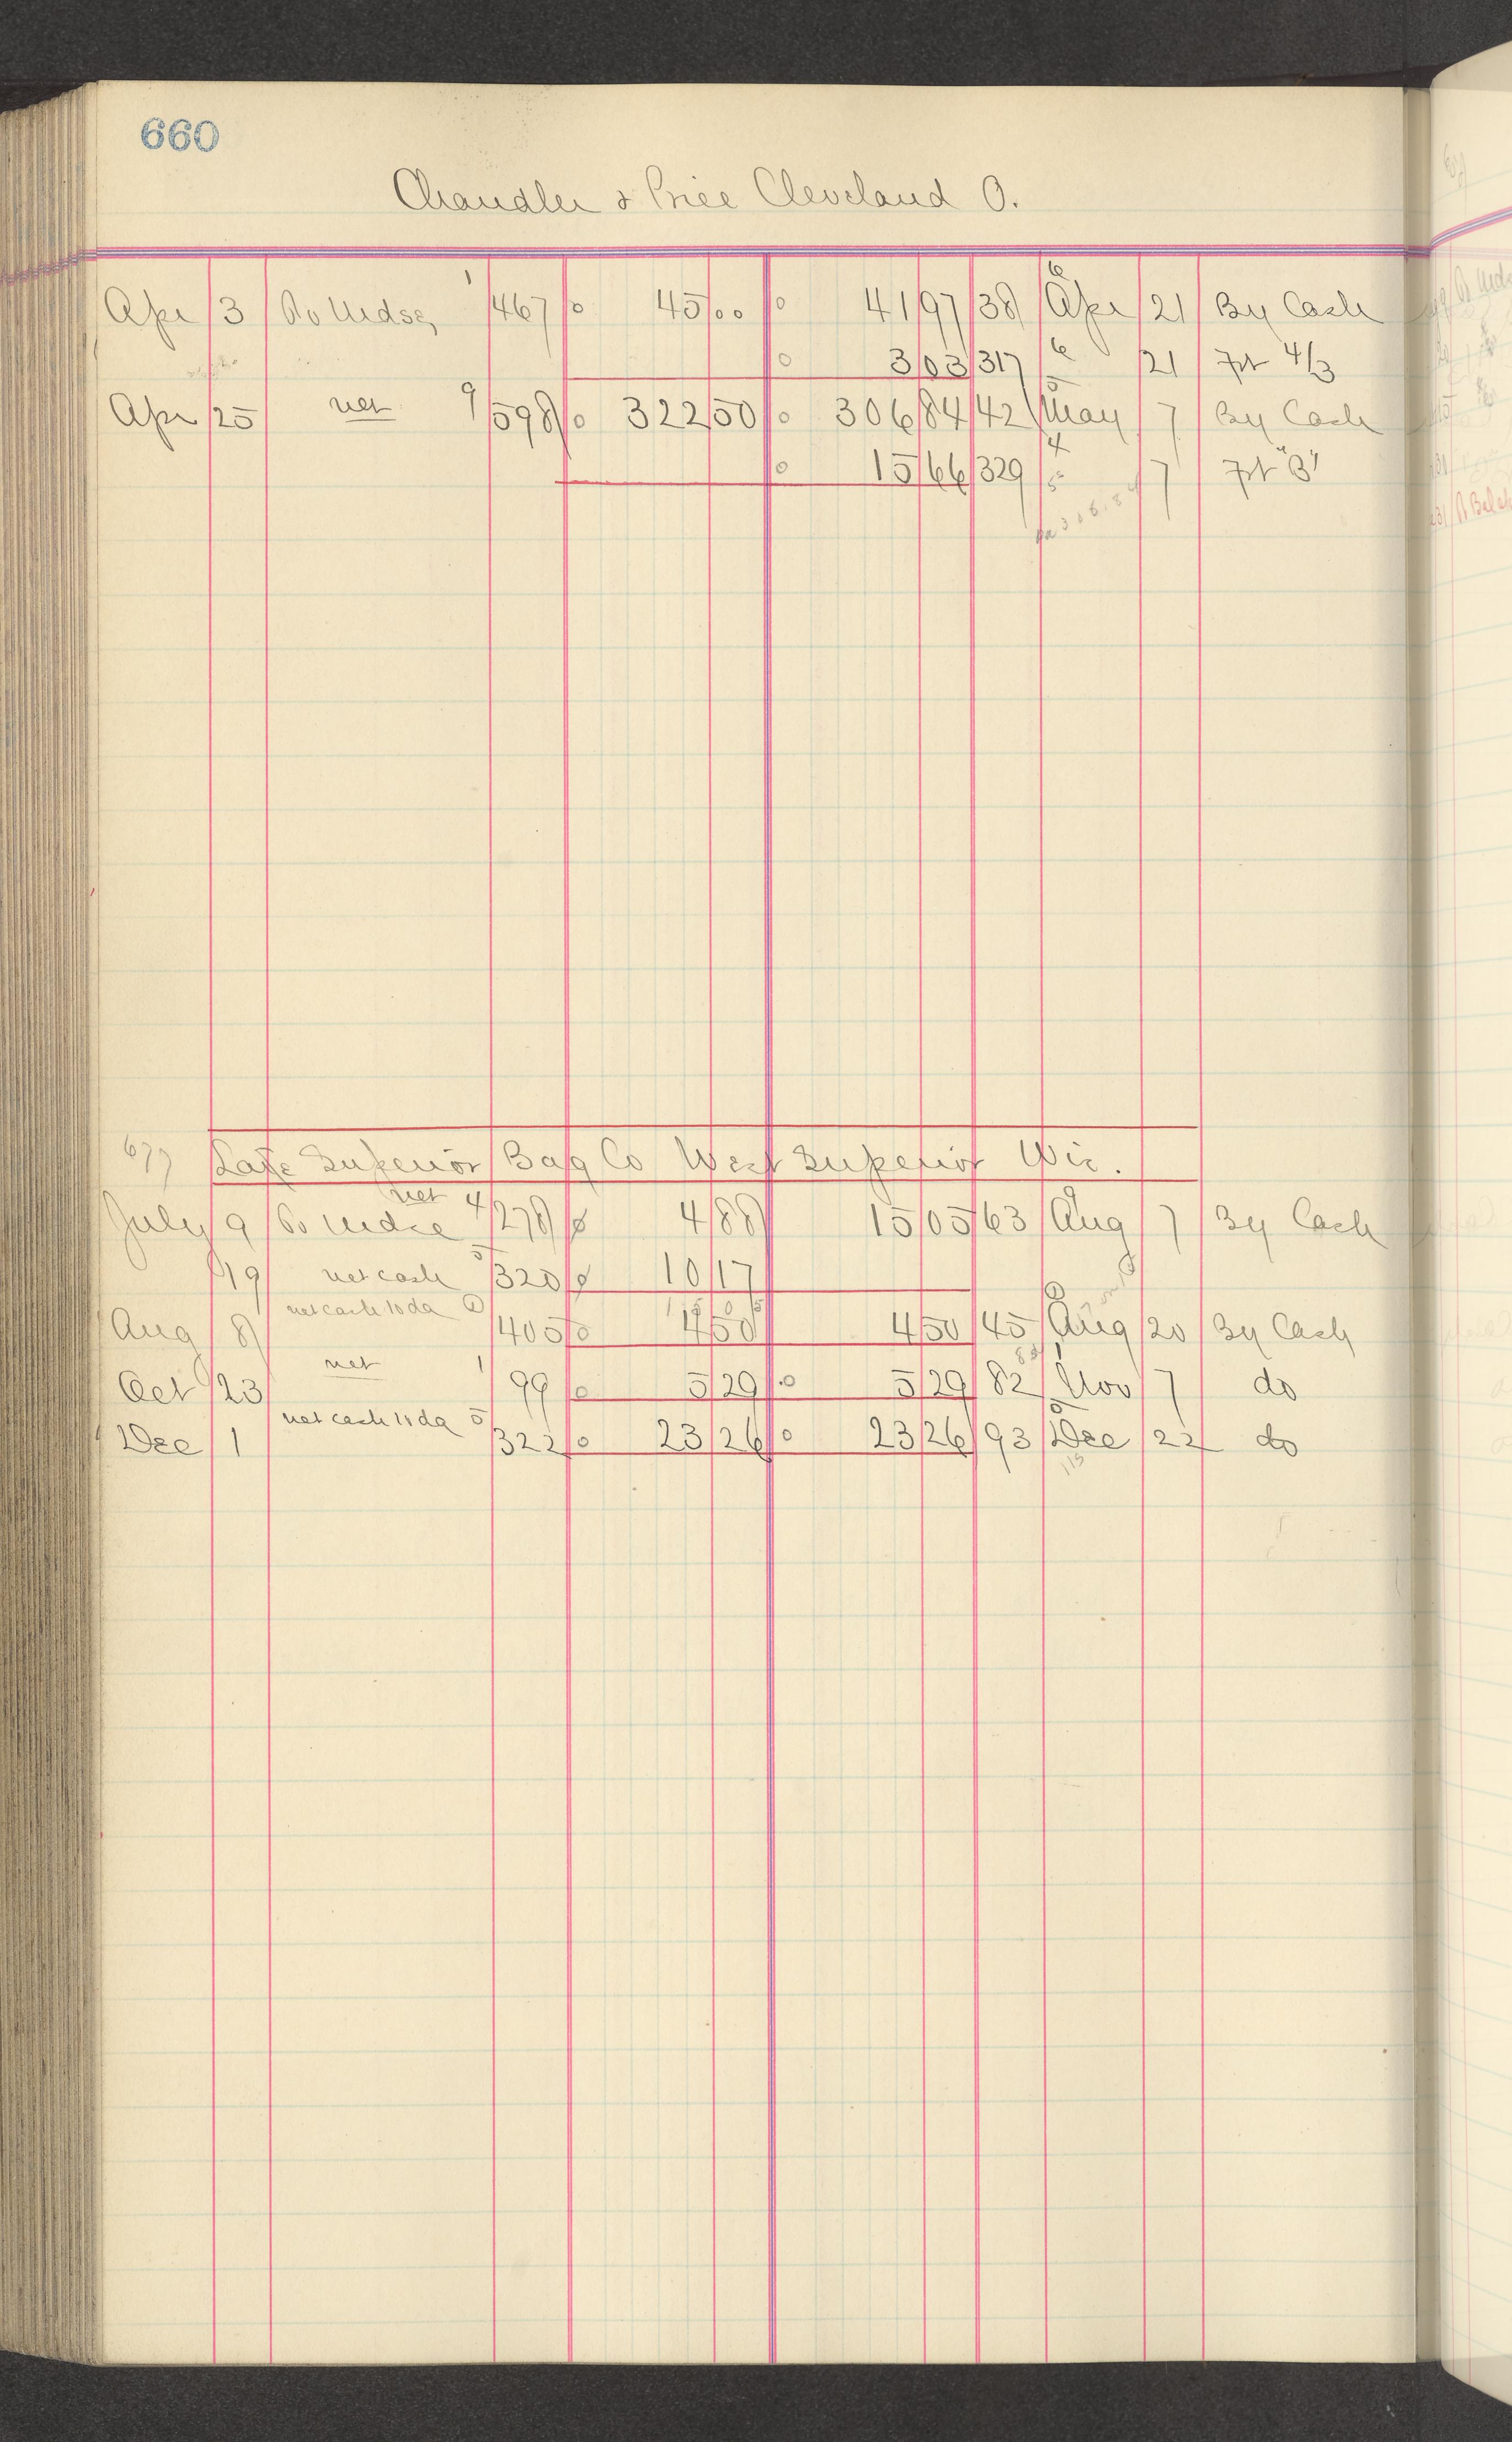 660
Chandler & Price Cleveland O.
Apr 3 To Mdse 1 467 45 00 41 97 38 6 Apr 21 By Cash
3 03 317 6 21 Frt 4/3
Apr 25 net 9 598 322 50 306 84 42 5 May 7 By Cash
15 66 329 4 5 7 Frt "B"
306.84
677 Lake Superior Bag Co West Superior Wis.
July 9 To Mdse net 4 278 4 88 15 05 63 9 Aug 7 By Cash
19 net cash 5 320 10 17
15 05
Aug 8 net cash 10 da 405 4 50 4 50 45 Aug 20 By Cash
Oct 23 net 1 99 5 29 5 29 82 Nov 7 do
Dec 1 net cash 10 da 5 322 23 26 23 26 93 Dec 22 do
115